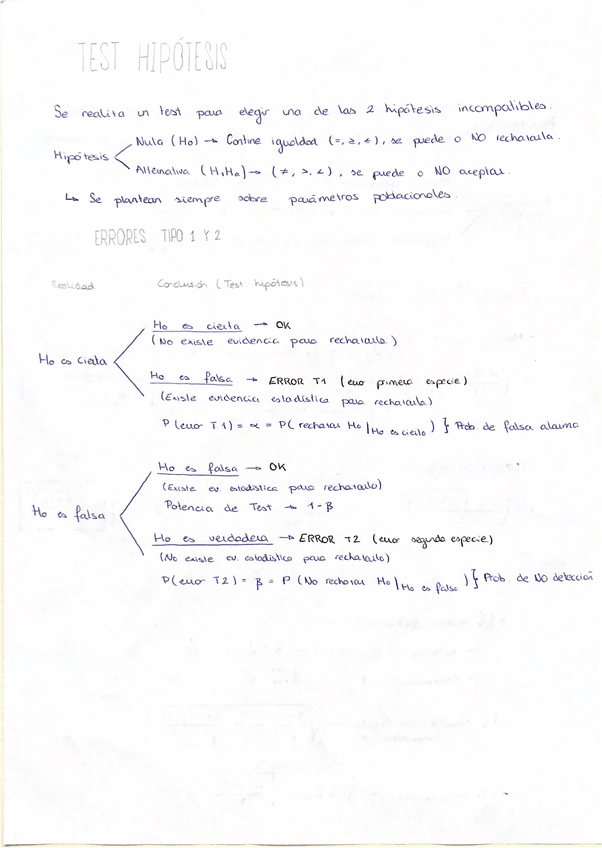 TEST HIPÓTESIS
Se realita un test para elegir una de las 2 hipótesis incompatibles.
Hipótesis
Nula (Ho) → Contine igualdad (=, ≥, ≤), se puede o NO rechazarla.
Alternativa (H1Ha) → (≠, >, <), se puede o NO aceptar.
↳ Se plantean siempre sobre parámetros poblacionales.
ERRORES TIPO 1 Y 2
Realidad Conclusión (Test hipótesis)
Ho es cierta → OK
(No existe evidencia para rechazarla)
Ho es cierta
Ho es falsa → ERROR T1 (error primera especie)
(Existe evidencia estadística para rechazarla)
P(error T1) = α = P(rechazar Ho | Ho es cierto) } Prob. de falsa alarma
Ho es falsa → OK
(Existe ev. estadística para rechazarlo)
Potencia de Test → 1-β
Ho es falsa
Ho es verdadera → ERROR T2 (error segunda especie)
(No existe ev. estadístico para rechazarlo)
P(error T2) = β = P (No rechazar Ho | Ho es falsa) } Prob. de NO detección